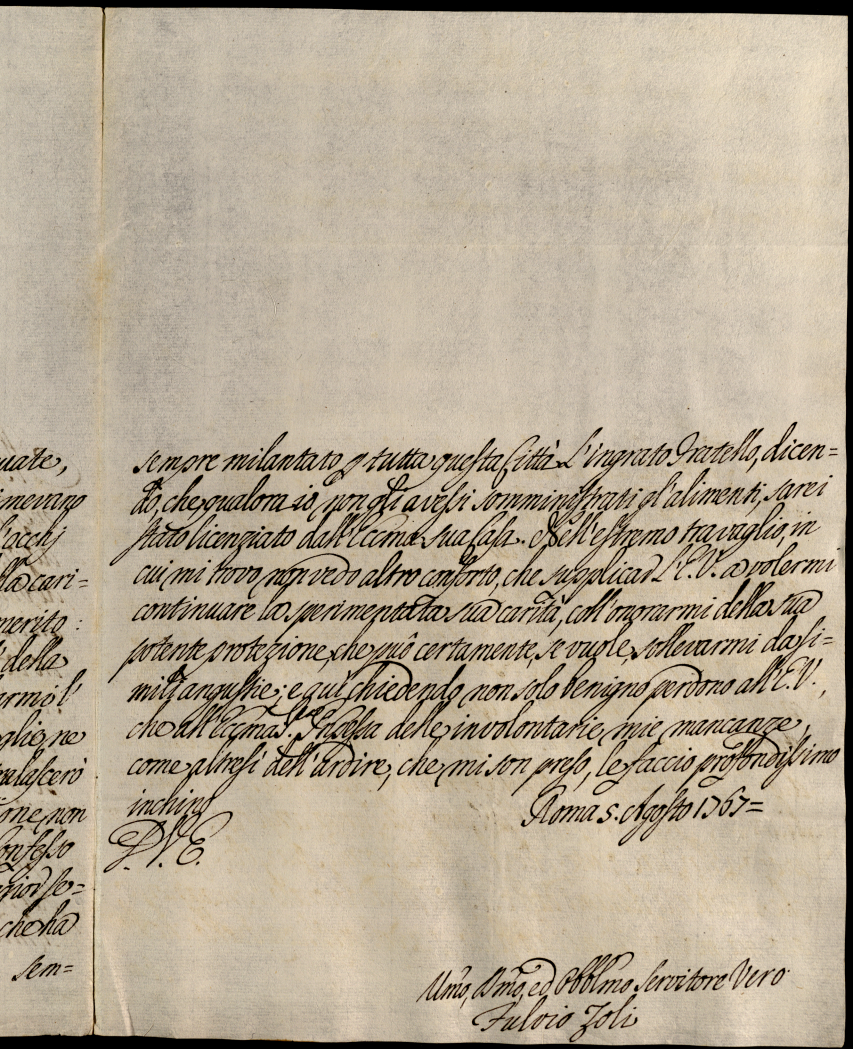 uate,
imevano
l'acchj
lla cari=
merito:
della
armi l'
glio, ne
tralascerò
one, non
Confesso
che ha
sem=
sempre milantato p tutta questa Città L'ingrato Fratello, dicen=
do, che qualora io non gli avessi somministrati gl'alimenti, sarei
stato licenziato dall'Eccma sua Casa. Nell'estremo travaglio, in
cui mi trovo, non vedo altro conforto, che supplicar L'E.V. a volermi
continuare la sperimentata sua carità, coll'onorarmi della sua
potente protezione, che può certamente, se vuole, sollevarmi da si=
mili angustie; e quì chiedendo non solo benigno perdono all'E.V.,
che all'Eccma Sra. Pnpessa delle involontarie mie mancanze,
come altresì dell'ardire, che mi son preso, le faccio profondissimo
inchino
Roma 5. Agosto 1767=
D.V.E.
Umo, Dmo, ed Obblmo Servitore Vero
Fulvio Zoli